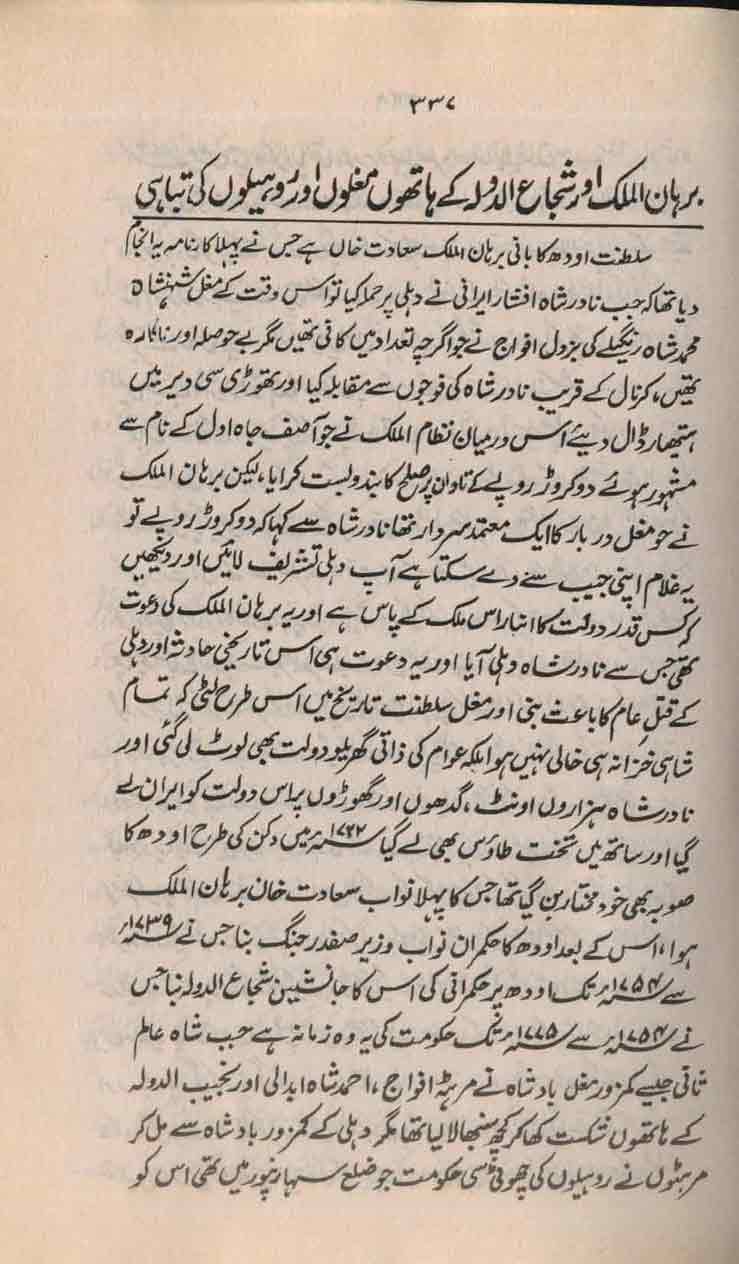 ۳۳۷
برہان الملک اور شجاع الدولہ کے ہاتھوں مغلوں اور روہیلوں کی تباہی
سلطنت اودھ کا بانی برہان الملک سعادت خاں ہے جس نے پہلا کارنامہ یہ انجام
دیا تھا کہ جب نادر شاہ افشار ایرانی نے دہلی پر حملہ کیا تو اس وقت کے مغل شہنشاہ
محمد شاہ رنگیلے کی بزدل افواج نے جو اگرچہ تعداد میں کافی تھیں مگر بے حوصلہ اور ناکارہ
تھیں، کرنال کے قریب نادر شاہ کی فوجوں سے مقابلہ کیا اور تھوڑی سی دیر میں
ہتھیار ڈال دیئے اس درمیان نظام الملک نے جو آصف جاہ اول کے نام سے
مشہور ہوئے دو کروڑ روپے کے تاوان پر صلح کا بندوبست کرایا، لیکن برہان الملک
نے جو مغل دربار کا ایک معتمد سردار تھا نادر شاہ سے کہا کہ دو کروڑ روپے تو
یہ غلام اپنی جیب سے دے سکتا ہے آپ دہلی تشریف لائیں اور دیکھیں
کہ کس قدر دولت کا انبار اس ملک کے پاس ہے اور یہ برہان الملک کی دعوت
تھی جس سے نادر شاہ دہلی آیا اور یہ دعوت ہی اس تاریخی حادثہ اور دہلی
کے قتل عام کا باعث بنی اور مغل سلطنت تاریخ میں اس طرح لٹی کہ تمام
شاہی خزانہ ہی خالی نہیں ہوا بلکہ عوام کی ذاتی گھریلو دولت بھی لوٹ لی گئی اور
نادر شاہ ہزاروں اونٹ، گدھوں اور گھوڑوں پر اس دولت کو ایران لے
گیا اور ساتھ میں تخت طاؤس بھی لے گیا ۱۷۲۲ء میں دکن کی طرح اودھ کا
صوبہ بھی خود مختار بن گیا تھا جس کا پہلا نواب سعادت خان برہان الملک
ہوا، اس کے بعد اودھ کا حکمران نواب وزیر صفدر جنگ بنا جس نے ۱۷۳۹ء
سے ۱۷۵۴ء تک اودھ پر حکمرانی کی اس کا جانشین شجاع الدولہ بنا جس
نے ۱۷۵۴ء سے ۱۷۷۵ء تک حکومت کی یہ وہ زمانہ ہے جب شاہ عالم
ثانی جیسے کمزور مغل بادشاہ نے مرہٹہ افواج، احمد شاہ ابدالی اور نجیب الدولہ
کے ہاتھوں شکست کھا کر کچھ سنبھالا لیا تھا مگر دہلی کے کمزور بادشاہ سے مل کر
مرہٹوں نے روہیلوں کی چھوٹی سی حکومت جو ضلع سہارنپور میں تھی اس کو